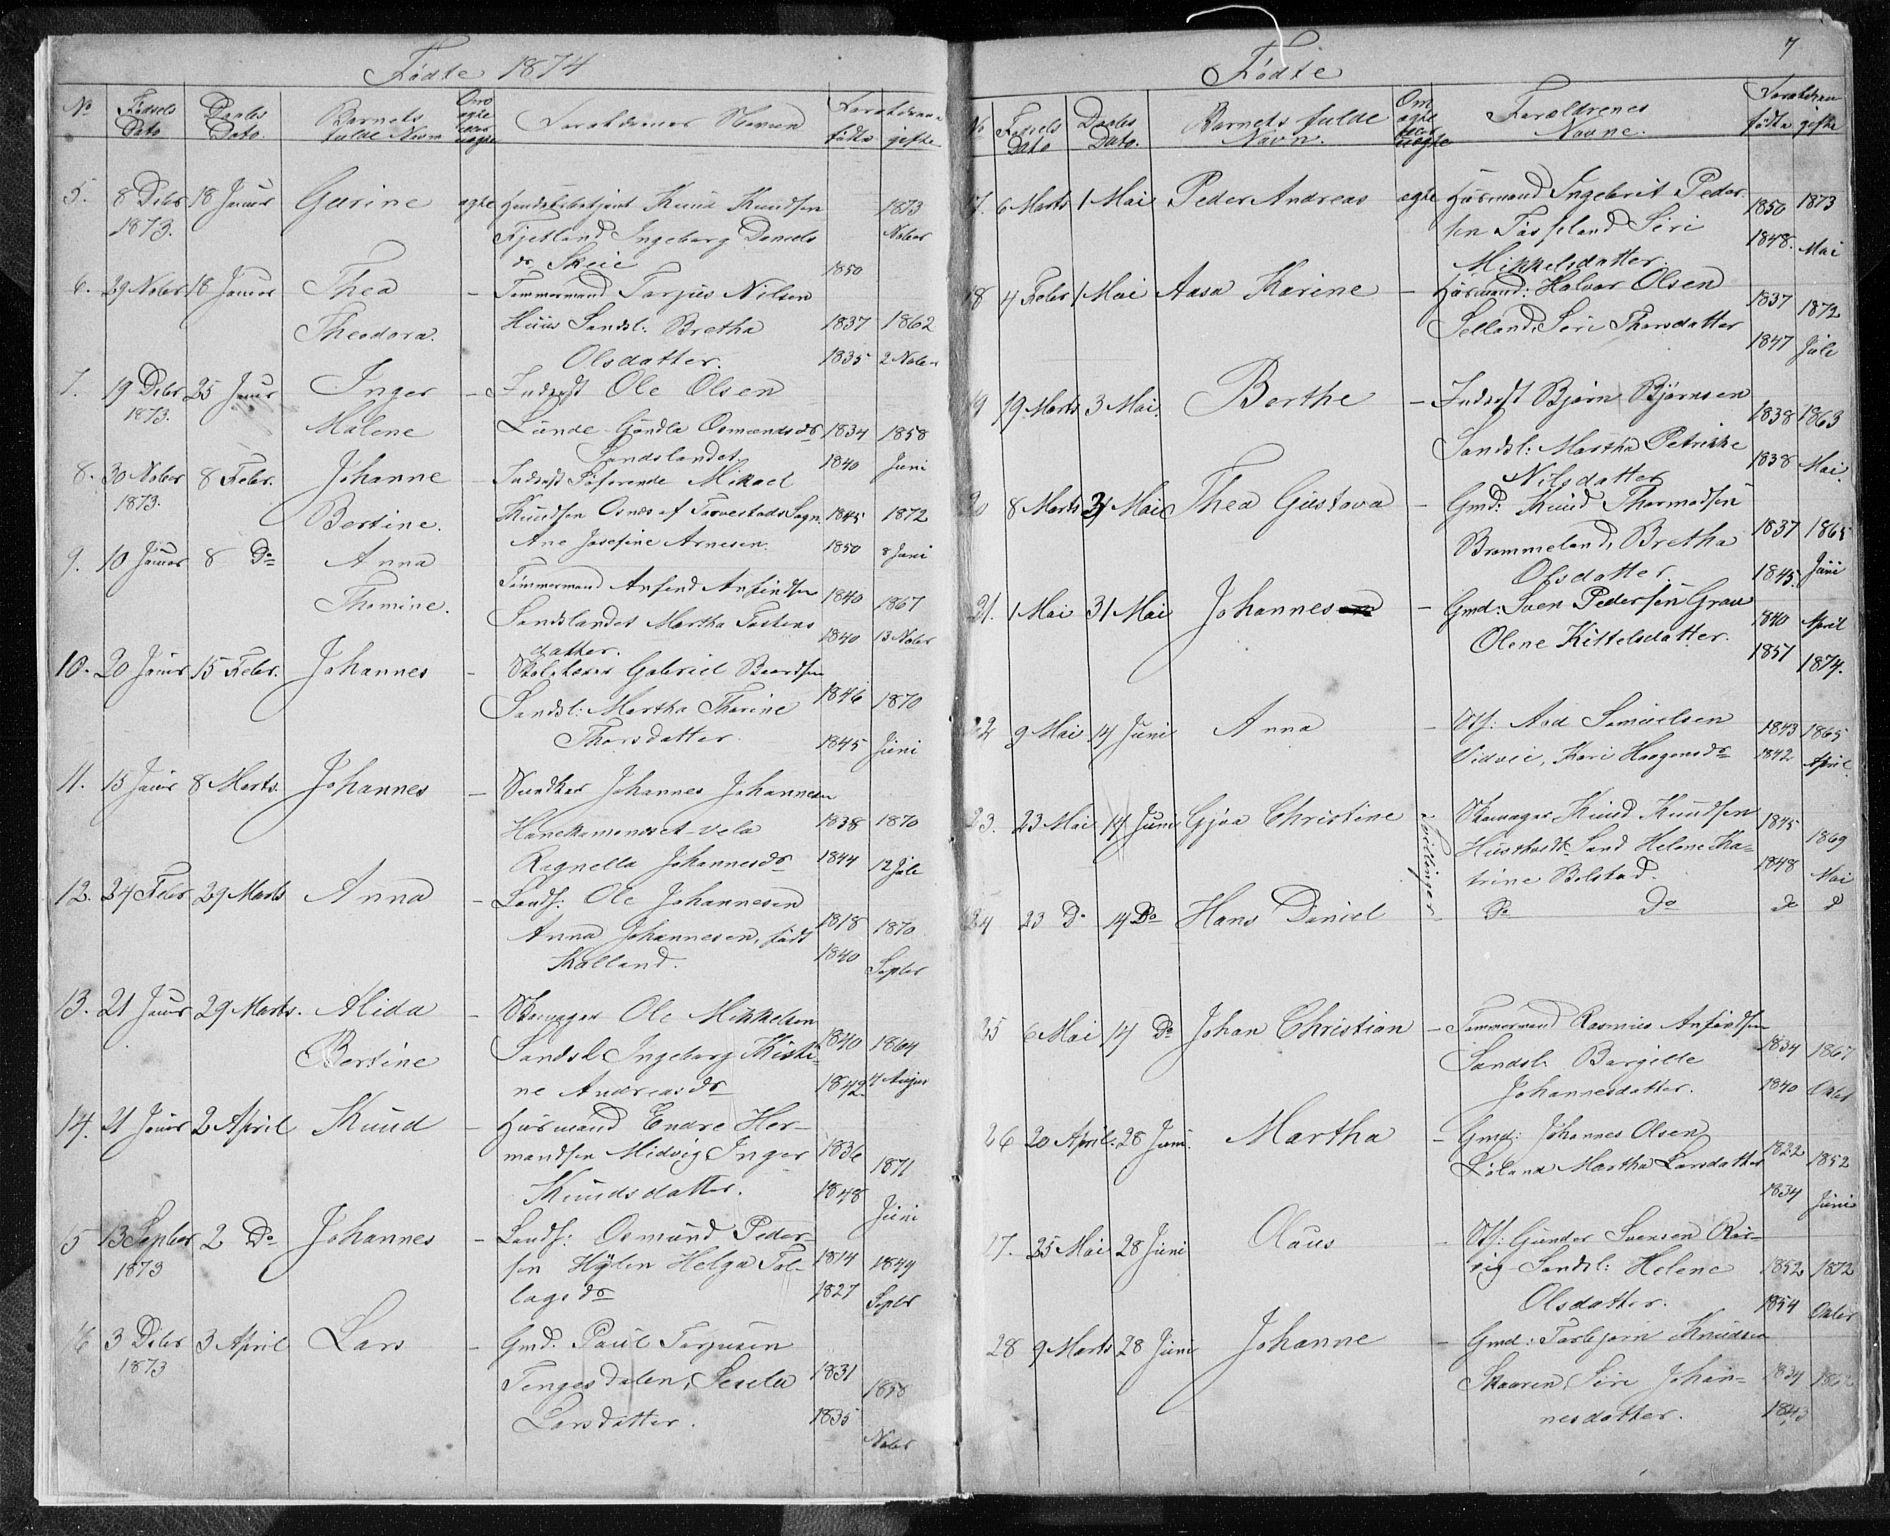 Fødte 1874
No
Fødsels Dato
Daabs Dato.
Barnets fulde Navn
Om ægte eller uægte
Forældrenes Navn
Forældrene
fødte
gifte
5. 8 Deber 18 Januar Gurine ægte Knud Knudsen 1873
1873. Fjetland Ingeborg Daniels Nober
dr Skeie 1850
6. 29 Nober 18 Januar Thea - Tømmermand Torjus Nilsen
Theodora. Huus Sandsl: Bretha 1837 1862
Olsdatter. 1835 2 Nober
7. 19 Deber 25 Januar Inger - Inderst Ole Olsen
1873. Malene Lunde Gundla Osmundsdr 1834 1858
Sandslandet. 1840 Juni
8. 30 Nober 8 Feber. Johanne - Inderst Søfarende Mikael
1873. Bertine. Knudsen Osnes af Torvestads Sogn. 1845 1872
Ane Josefine Arnesen. 1850 8 Juni
9. 10 Januar 8 Do Anna Tømmermand Anfind Anfindsen 1840 1867
Thomine. Sandslandet Martha Tostens 1840 13 Nober
datter.
10. 20 Januar 15 Feber. Johannes - Skolelærer Gabriel Baardsen
Sandsl: Martha Thorine 1846 1870
Thorsdatter. 1845 Juni
11. 15 Januar 8 Marts. Johannes - Johannes Johannesen
Hanekamsnaset Vela 1838 1870
Ragnella Johannesdr 1844 12 Juli
12. 24 Feber 29 Marts Anna - Sandsl: Ole Johannesen
Anna Johannesen, født 1818 1870
Kalland. 1840 Septbr
13. 21 Januar 29 Marts. Alida - Skomager Ole Mikkelsen
Bertine Sandsl. Ingeborg Kristi- 1840 1864
ne Andreasdr 1842 4 August
14. 21 Januar 2 April Knud - Huusmand Endre Her-
mandsen Midvig Inger 1836 1871
Knudsdatter. 1848 Juni
15 13 Septber 2 Do Johannes - Sandsl: Osmund Peder-
1873 sen Hylen Helga Tol- 1814 1849
lags dr 1827 Septbr
16 3 Deber 3 April Lars - Gmd. Paul Torjusen
1873 Tengesdalen, Sesela 1831 1858
Larsdatter. 1835 Nober
7
Fødte
No
Fødsels Dato
Daabs Dato.
Barnets fulde Navn.
Om ægte eller uægte
Forældrenes Navne.
Forældrene
fødte
gifte
17. 6 Marts 1 Mai Peder Andreas ægte Huusmand Ingebrit Peder
sen Fosseland Siri 1850 1873
Mikkelsdatter. 1848. Mai
18 4 Feber 1 Mai Aasa Karine - Huusmand: Halvor Olsen
Selland, Siri Thorsdatter 1837 1872
1847 Juli
19 19 Marts 3 Mai Berthe - Inderst Bjørn Bjørnsen
Sandsl: Martha Petrikke 1838 1863
Nilsdatter 1838 Mai.
20 8 Marts 31 Mai Thea Gustava - Gmd: Knud Thormodsen
Brommeland, Bretha 1837 1865
Olsdatter. 1845. Juni
21. 1 Mai 31 Mai Johannes - Gmd: Sven Pedersen Grau
Olene Kittelsdatter. 1840 April
1851 1874.
22 9 Mai 14 Juni Anna - Aad Samuelsen 1843 1865
Vidvei, Kari Haagensdr 1842 April
23. 23 Mai 14 Juni Gjøa Christine Tvillinger Skomager Knud Knudsen 1845
Husthoft Sand Helene Ka= 1848 1869
trine Bolstad. Mai
24 23 Do 14 Do Hans Daniel Do Do Do Do
25 6 Mai 14 Do Johan Christian - Tømmermand Rasmus Anfindsen
Sandsl: Bergitte 1834 1867
Johannesdatter. 1840 Otbr
26 20 April. 28 Juni. Martha - Gmd: Johannes Olsen
Løland Martha Larsdatter 1822 1852
1834 Juni
27. 25 Mai 28 Juni Olaus - Gunder Svensen Rør-
vig Sandsl: Helene 1852 1872
Olsdatter. 1854 Otbr
28 9 Marts 28 Juni Johanne - Gmd: Torbjørn Knudsen
Skaaren, Siri Johan- 1834 1862
nesdatter. 1843